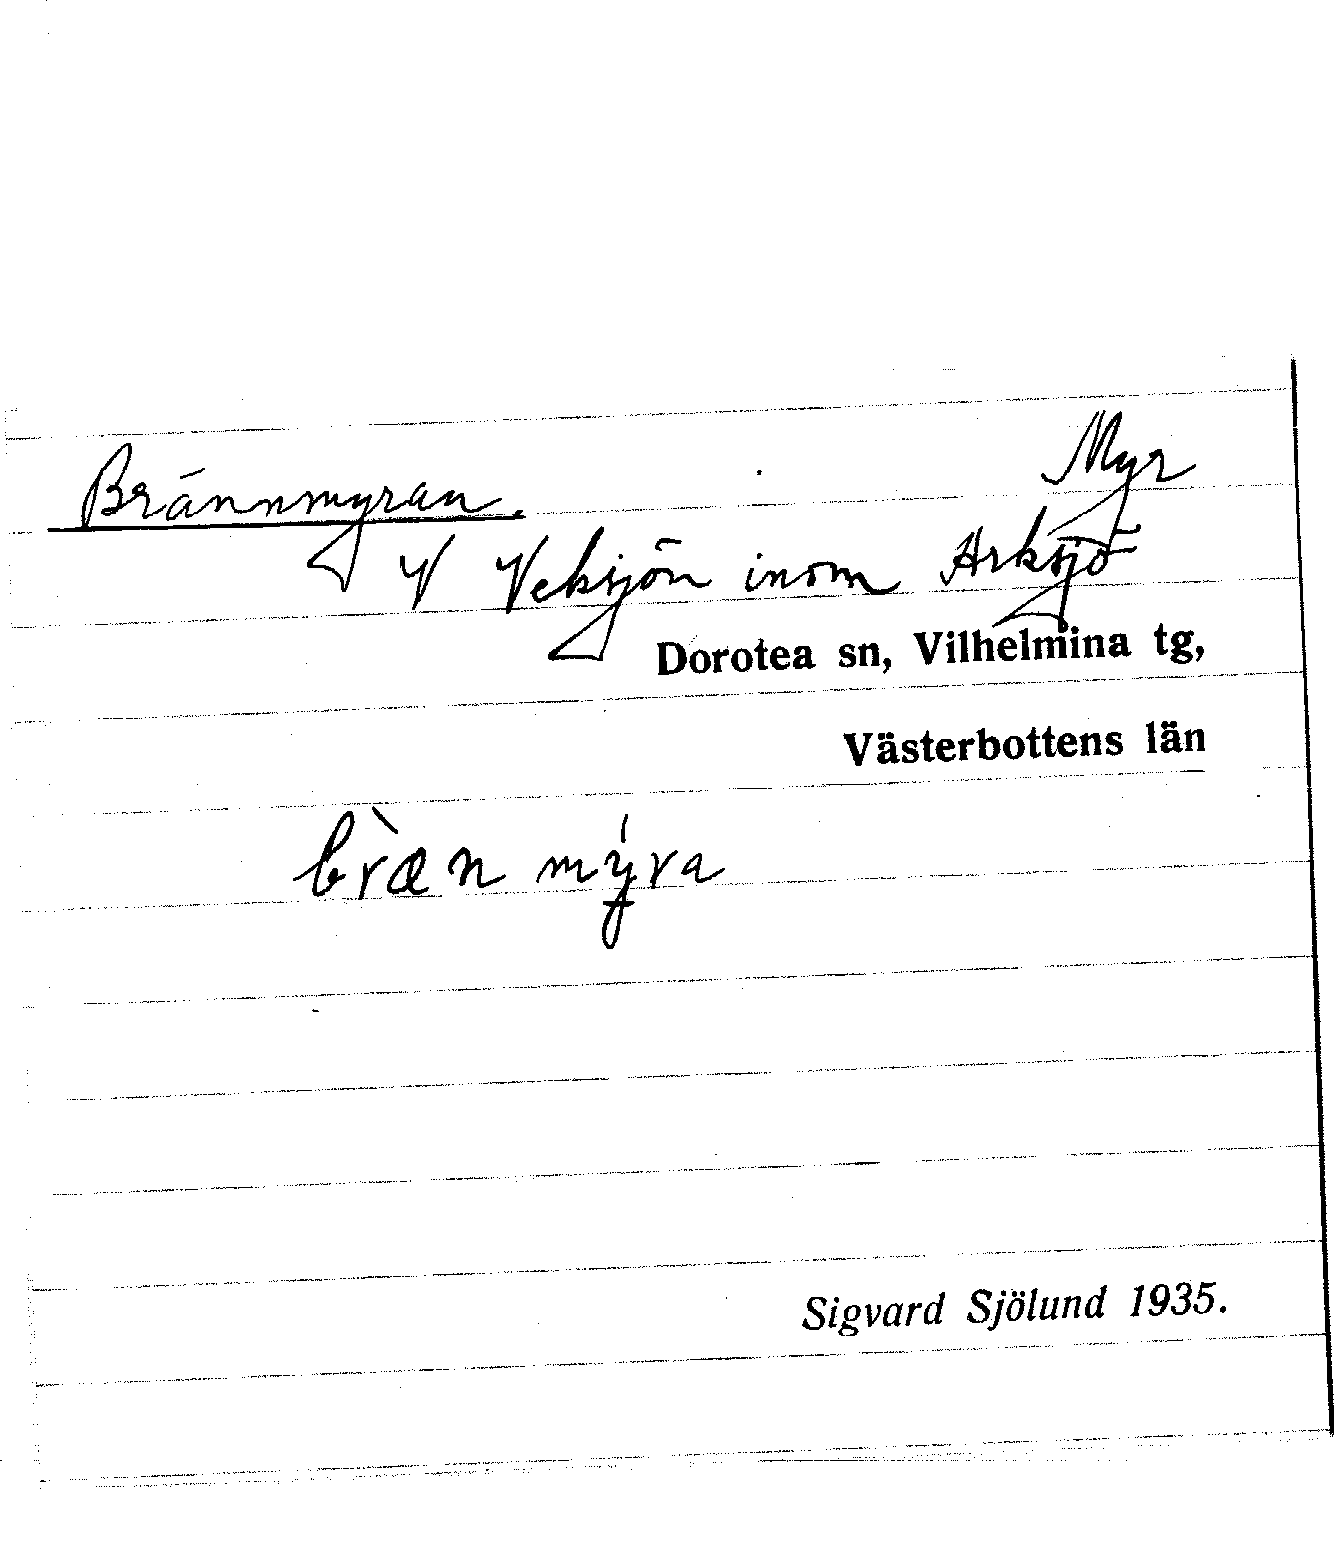 Brännmyran.
Myr
V Veksjön inom Arksjö
Dorotea sn, Vilhelmina tg,
Västerbottens län
bræ̀n mýra
Sigvard Sjölund 1935.